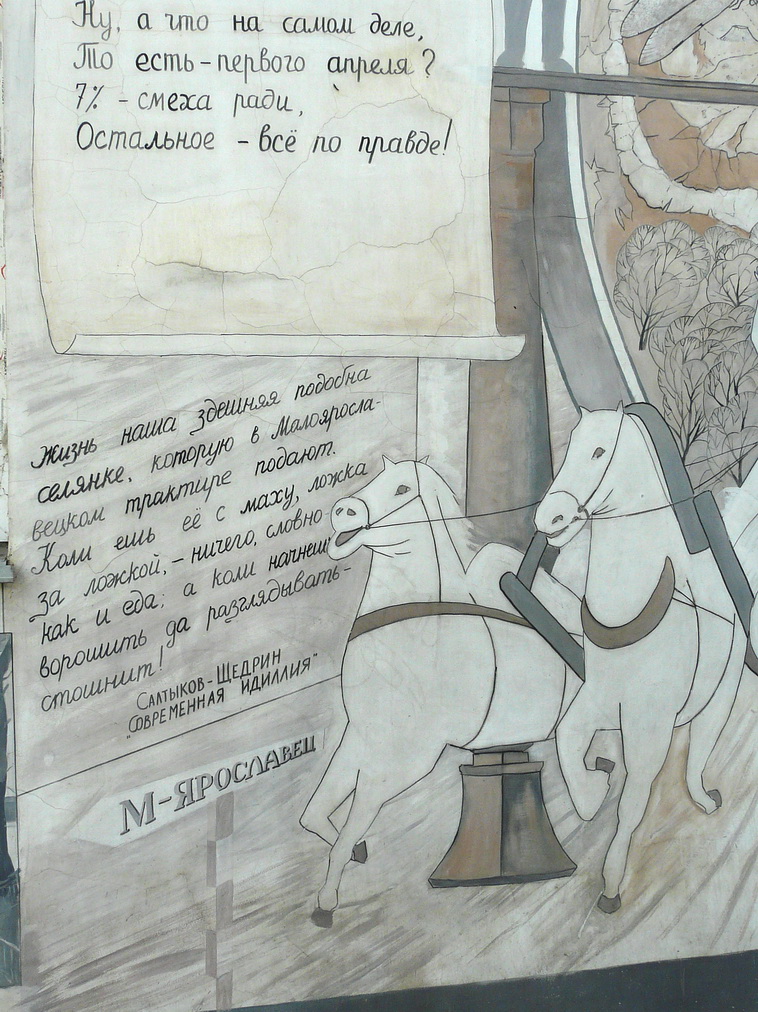 Ну, а что на самом деле,
То есть - первого апреля?
7% - смеха ради,
Остальное - всё по правде!
Жизнь наша здешняя подобна
селянке, которую в Малояросла-
вецком трактире подают.
Коли ешь её с маху, ложка
за ложкой, - ничего, словно
как и еда; а коли начнешь
ворошить да разглядывать -
стошнит!
Салтыков-Щедрин
"Современная идиллия"
М-ЯРОСЛАВЕЦ